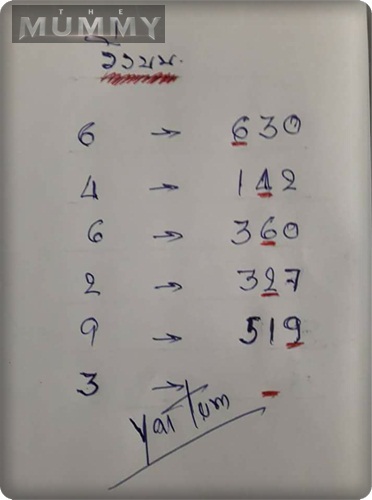 THE
MUMMY
วิ่งบน.
6 → 630
4 → 142
6 → 360
2 → 327
9 → 519
3 → _
Yai Tum